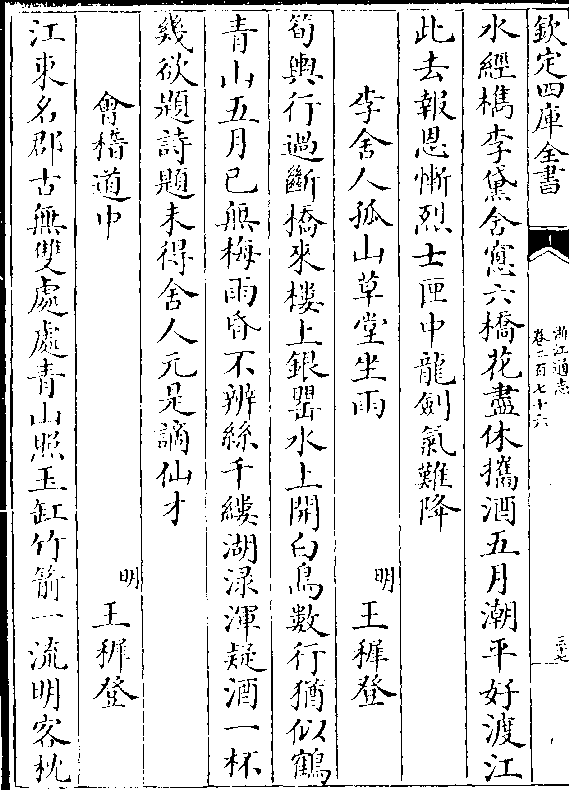 欽定四庫全書
浙江通志
卷二百七十六
三十七
水經檇李黛含窻六橋花盡休攜酒五月潮平好渡江
此去報恩慚烈士匣中龍劍氣難降
李舍人孤山草堂坐雨
明 王穉登
筍輿行過斷橋來樓上銀罌水上開白鳥數行猶似鶴
青山五月已無梅雨昏不辨絲千縷湖渌渾疑酒一杯
幾欲題詩題未得舍人元是謫仙才
會稽道中
明 王穉登
江東名郡古無雙處處青山照玉缸竹箭一流明客枕